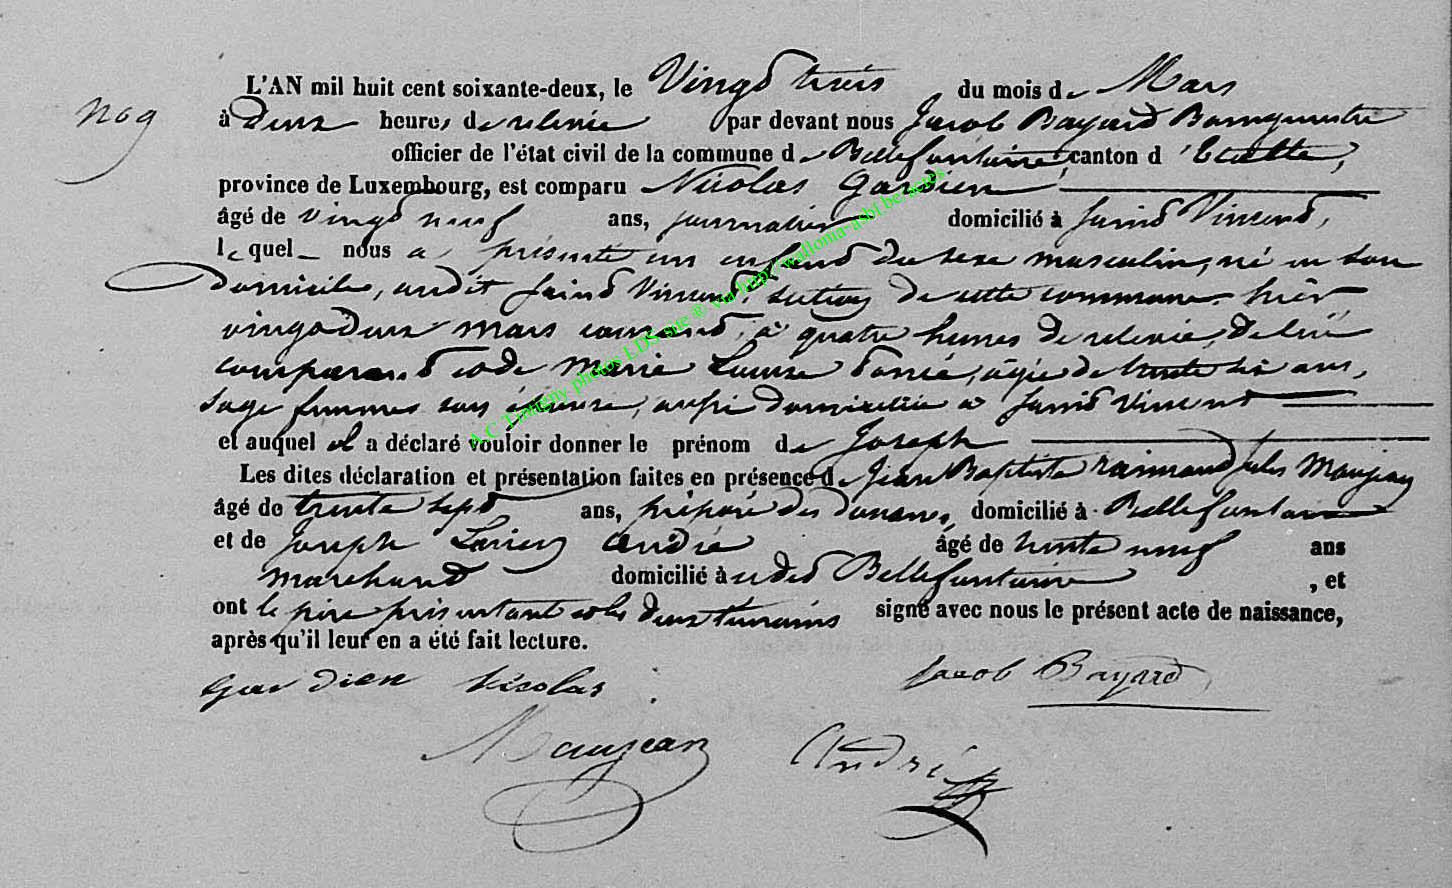 L'AN mil huit cent soixante-deux, le Vingt trois du mois de Mars
No 9
à Deux heures de relevée par devant nous Jacob Bayard Bourgmestre
officier de l'état civil de la commune de Bellefontaine, canton d'Etalle,
province de Luxembourg, est comparu Nicolas Gardien
âgé de vingt neuf ans, journalier domicilié à Saint Vincent,
lequel nous a présenté un enfant du sexe masculin, né en son
Domicile, audit Saint Vincent, section de cette commune hier
vingt deux mars courant, à quatre heures de relevée, de lui
comparant et de Marie Louise, âgée de trente six ans,
sage femme son épouse, aussi domiciliée à Saint Vincent
et auquel il a déclaré vouloir donner le prénom de Joseph
Les dites déclaration et présentation faites en présence de Jean Baptiste Raimond Jules Maujean
âgé de trente sept ans, préposé des douanes, domicilié à Bellefontaine
et de Joseph André âgé de trente neuf ans
marchand domicilié à Bellefontaine, et
ont le père présentant et les deux témoins signé avec nous le présent acte de naissance,
après qu'il leur en a été fait lecture.
Gardien Nicolas Jacob Bayard
Maujean André
A.C.Tintigny photos LDS sue ® via http://wallonia-asbl.be/actes